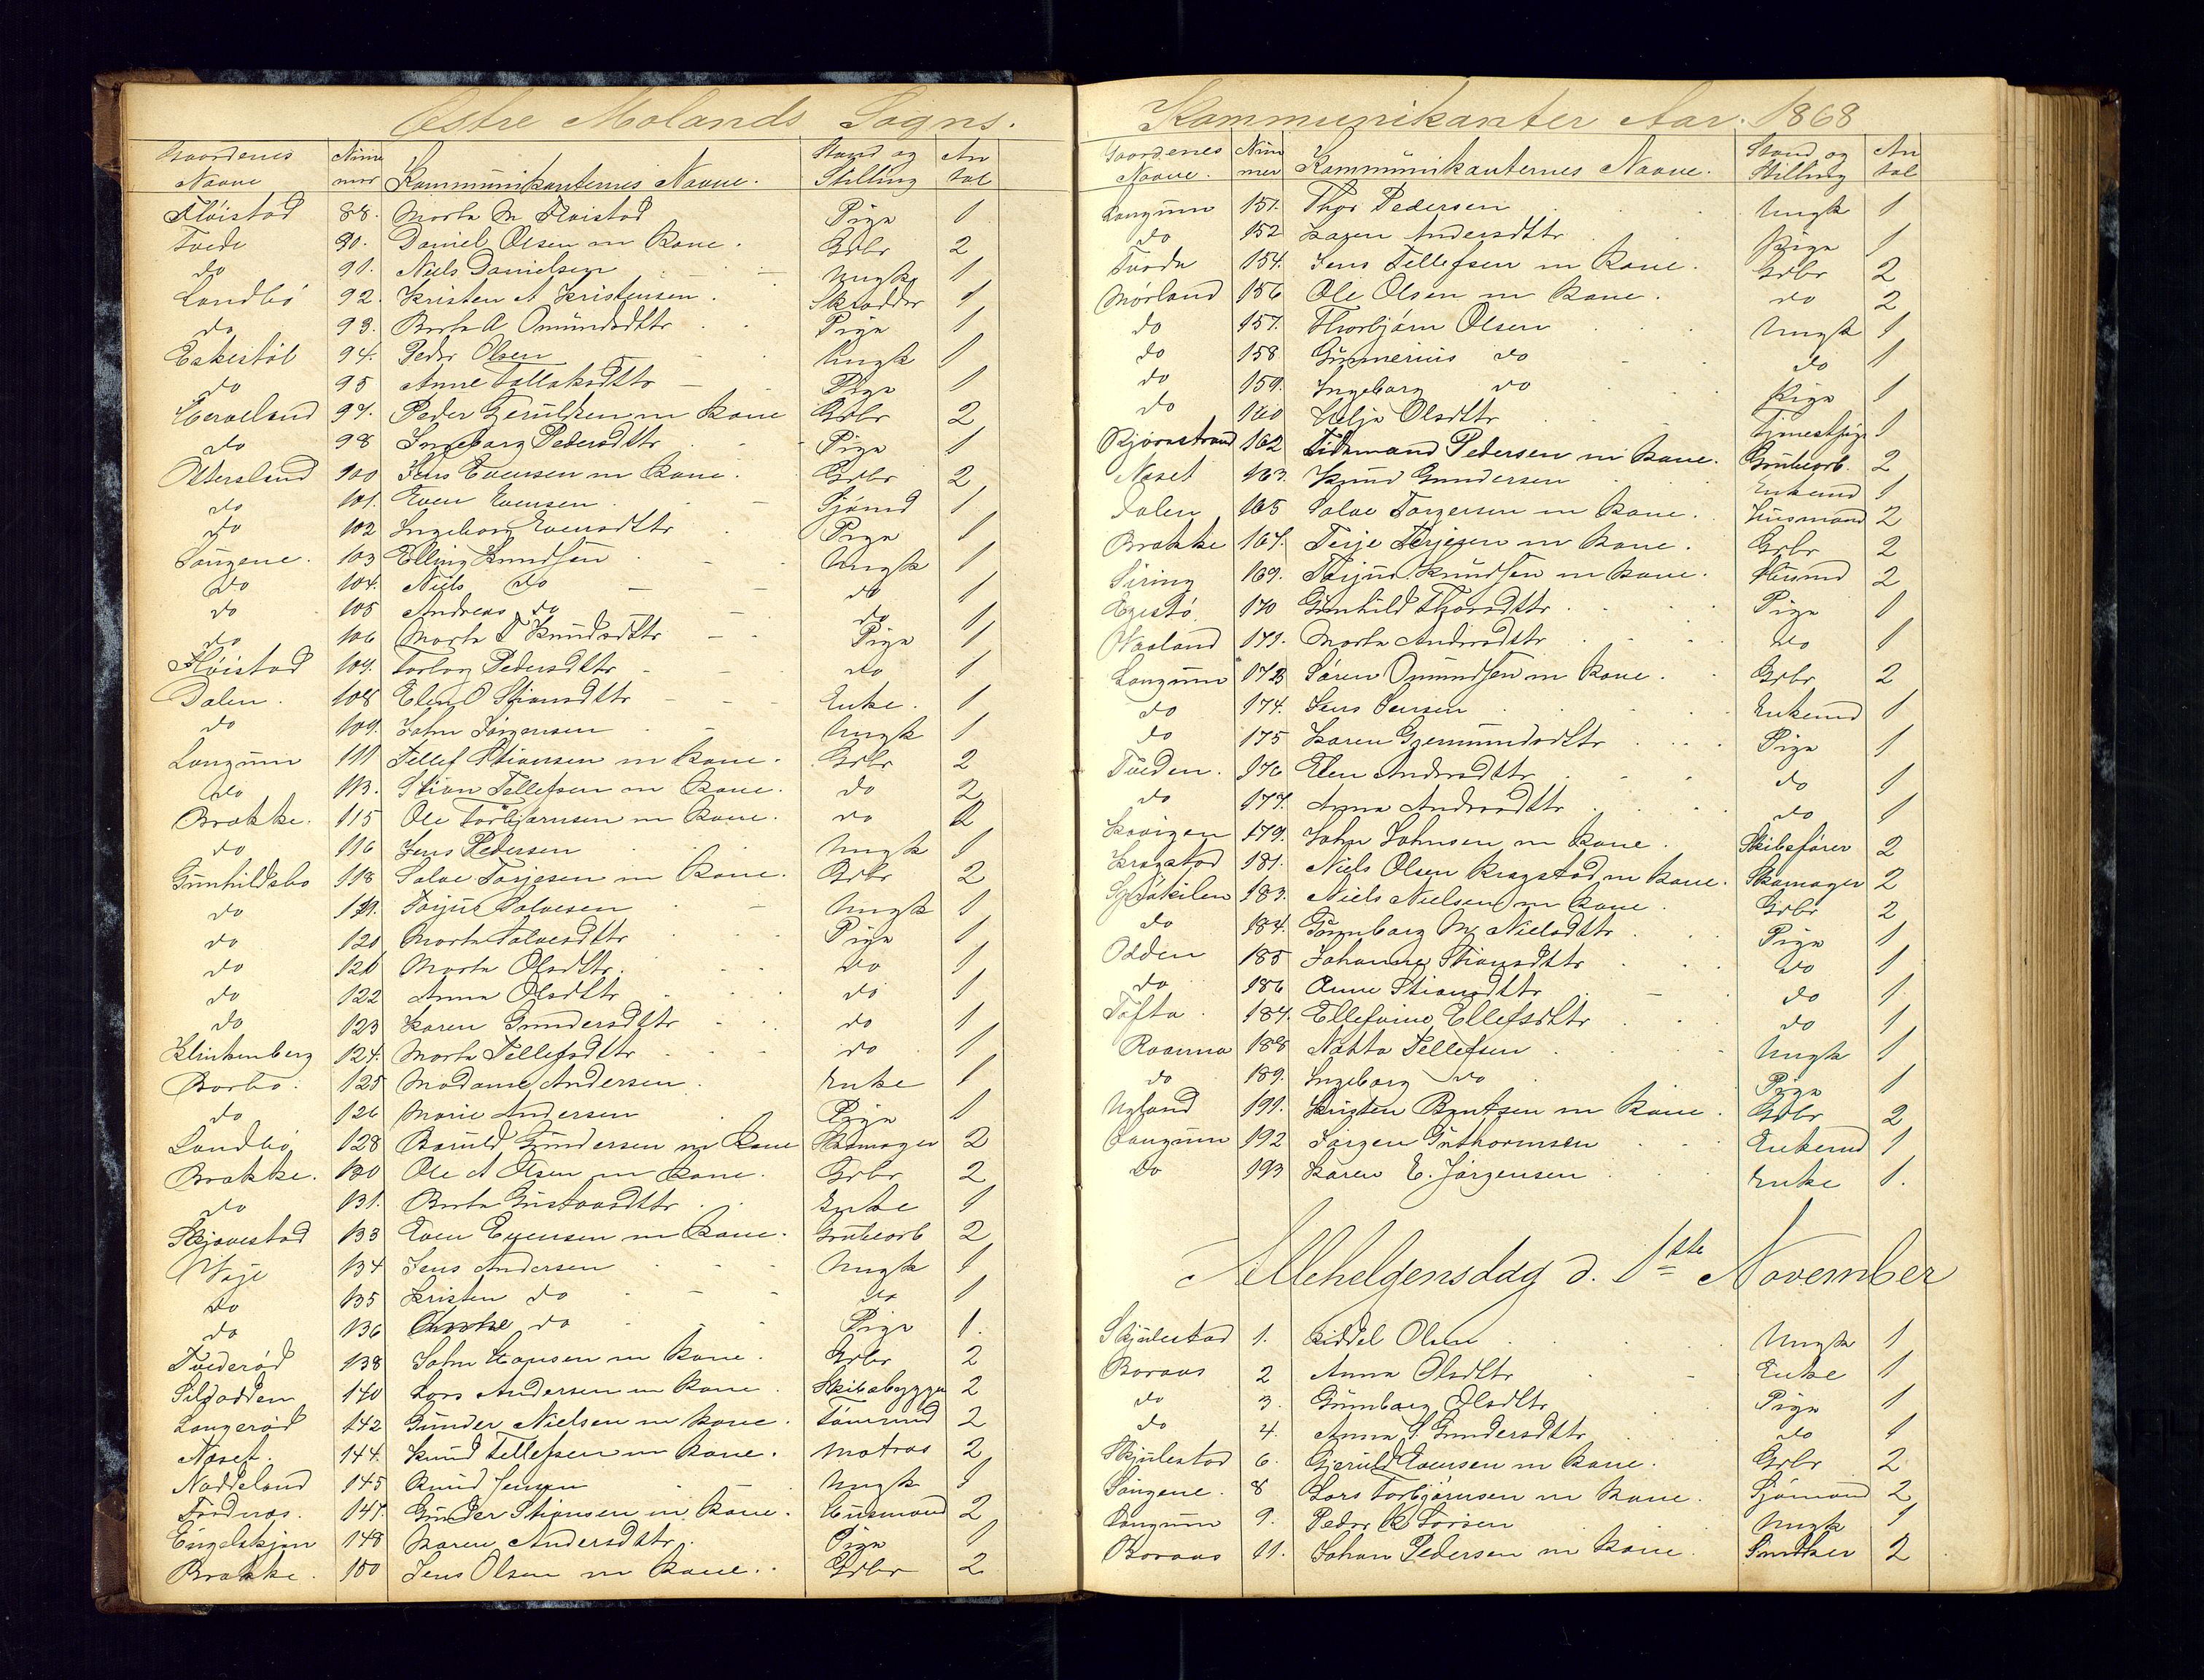 Østre Molands Sogns.
Gaardenes Navne Nummer Kommunikanternes Navne. Stand og Stilling Antal
Fløistad 88. Marta M Fløistad Pige 1
Tvede 90. Daniel Olsen m Kone. Grbr 2
do 91. Niels Danielsen Ungk 1
Landbö 92. Kristen A Kristensen. Skrædder 1
do 93. Berta A Omundsdttr Pige 1
Eskestøl 94. Peder Olsen Ungk 1
do 95 Anne Tallaksdttr Pige 1
Herveland 97. Peder Gjeruldsen m Kone Grbr 2
do 98 Ingeborg Pedersdttr Pige 1
Ottersland 100 Jens Evensen m Kone. Grbr 2
do 101. Even Evensen Sjømd 1
do 102 Ingeborg Evensdttr Pige 1
Songene. 103 Elling Knudsen Ungk 1
do 104. Niels do do 1
do 105 Andreas do do 1
do 106 Marta T Knudsdttr Pige 1
Fløistad 107. Torlog Pedersdttr do 1
Dalen. 108 Elen O Stiansdttr Enke. 1
do 109. John Jörgensen Ungk 1
Langum 111 Tellef Stiansen m Kone. Grbr 2
do 113. Stian Tellefsen m Kone. do 2
Brække. 115 Ole Torbjørnsen m Kone. do 2
do 116 Jens Pedersen Ungk 1
Gunhildsbo 118 Salve Torjesen m Kone. Grbr 2
do 119. Torjus Salvesen Ungk 1
do 120 Marta Salvesdttr Pige 1
do 121 Marta Olsdttr. do 1
do 122 Anna Olsdttr do 1
do 123 Karen Gundersdttr do 1
Klinkenberg 124. Marta Tellefsdttr do 1
Barbo. 125 Madame Andersen. Enke 1
do 126 Marie Andersen Pige 1
Landbö 128 Baruld Gundersen m Kone Skomager 2
Brække. 130 Ole A Olsen m Kone. Grbr 2
do 131. Berta Gustavsdttr Enke 1
Skjævestad 133 Even Evensen m Kone. Grubearb 2
Waje 134 Jens Andersen Ungk 1
do 135 Kristen do do 1
do 136 do Pige 1.
Tvederød 138 John Hansen m Kone. Grbr 2
Sildodden 140 Lars Andersen m Kone. Skibsbygger 2
Langerød 142 Gunder Nielsen m Kone. Tömmd 2
Næset. 144. Knud Tellefsen m Kone. Matros 2
Naddeland 145 Knud Jensen Ungk 1
Frednæs. 147. Gunder Stiansen m Kone. Husmand 2
Engelskjøn 148 Karen Andersdttr. Pige 1
Brække. 150 Jens Olsen m Kone. Grbr 2
Kommunikanter Aar. 1868
Gaardenes Navne. Nummer Kommunikanternes Navne. Stand og Stilling Antal
Langum 151. Thor Pedersen Ungk 1
do 152 Karen Andersdttr Pige 1
Tvede 154. Jens Tellefsen m Kone. Grbr 2
Mörland 156 Ole Olsen m Kone. do 2
do 157. Thorbjörn Olsen Ungk 1
do 158 Gunnerius do do 1
do 159. Ingeborg do Pige 1
do 160 Helje Olsdttr Tjenestpige 1
Bjørnstrand 162 Tidemand Pedersen m Kone. Grubearb. 2
Næset 163. Knud Gundersen Enkemd 1
Dalen 165 Salve Torgersen m Kone. Husmand 2
Brække 167. Terje Terjesen m Kone. Grbr 2
Siring 169. Torjus Knudsen m Kone. Husmd 2
Egestö 170 Gunhild Thorsdttr. Pige 1
Waaland 171. Marta Andersdttr do 1
Langum 173 Sören Omundsen m Kone. Grbr 2
do 174. Jens Jensen Enkemd 1
do 175 Karen Gjermundsdttr Pige 1
Tveden. 176 Elen Andersdttr do 1
do 177. Anna Andersdttr do 1
179. John Johnsen m Kone. Skibsfører 2
Kragstad 181. Niels Olsen Kragstad m Kone. Skomager 2
183. Niels Nielsen m Kone. Grbr 2
do 184. Gunborg M. Nielsdttr Pige 1
Odden 185 Johanne Stiansdttr do 1
do 186 Anne Stiansdttr do 1
Tofta. 187. Ellefine Ellefsdttr do 1
Raanna 188 Nætte Tellefsen Ungk 1
do 189. Ingeborg do Pige 1
Ugland 191. Kristen Bentsen m Kone. Grbr 2
Langum 192 Jörgen Guthormsen Enkemd 1
do 193 Karen E. Jörgensen Enke 1.
Allehelgensdag d. 1ste November
Skjulestad 1. Kiddel Olsen Ungk 1
Boraas 2 Anna Olsdttr Enke 1
do 3. Gunborg Olsdttr Pige 1
do 4. Anna S. Gundersdttr do 1
Skjulestad 6. Gjeruld Evensen m Kone. Grbr 2
Songene. 8 Lars Torbjörnsen m Kone. Sjømand 2
Langum 9. Peder K Larsen Ungk 1
Boraas 11. Johan Pedersen m Kone. Snedker 2